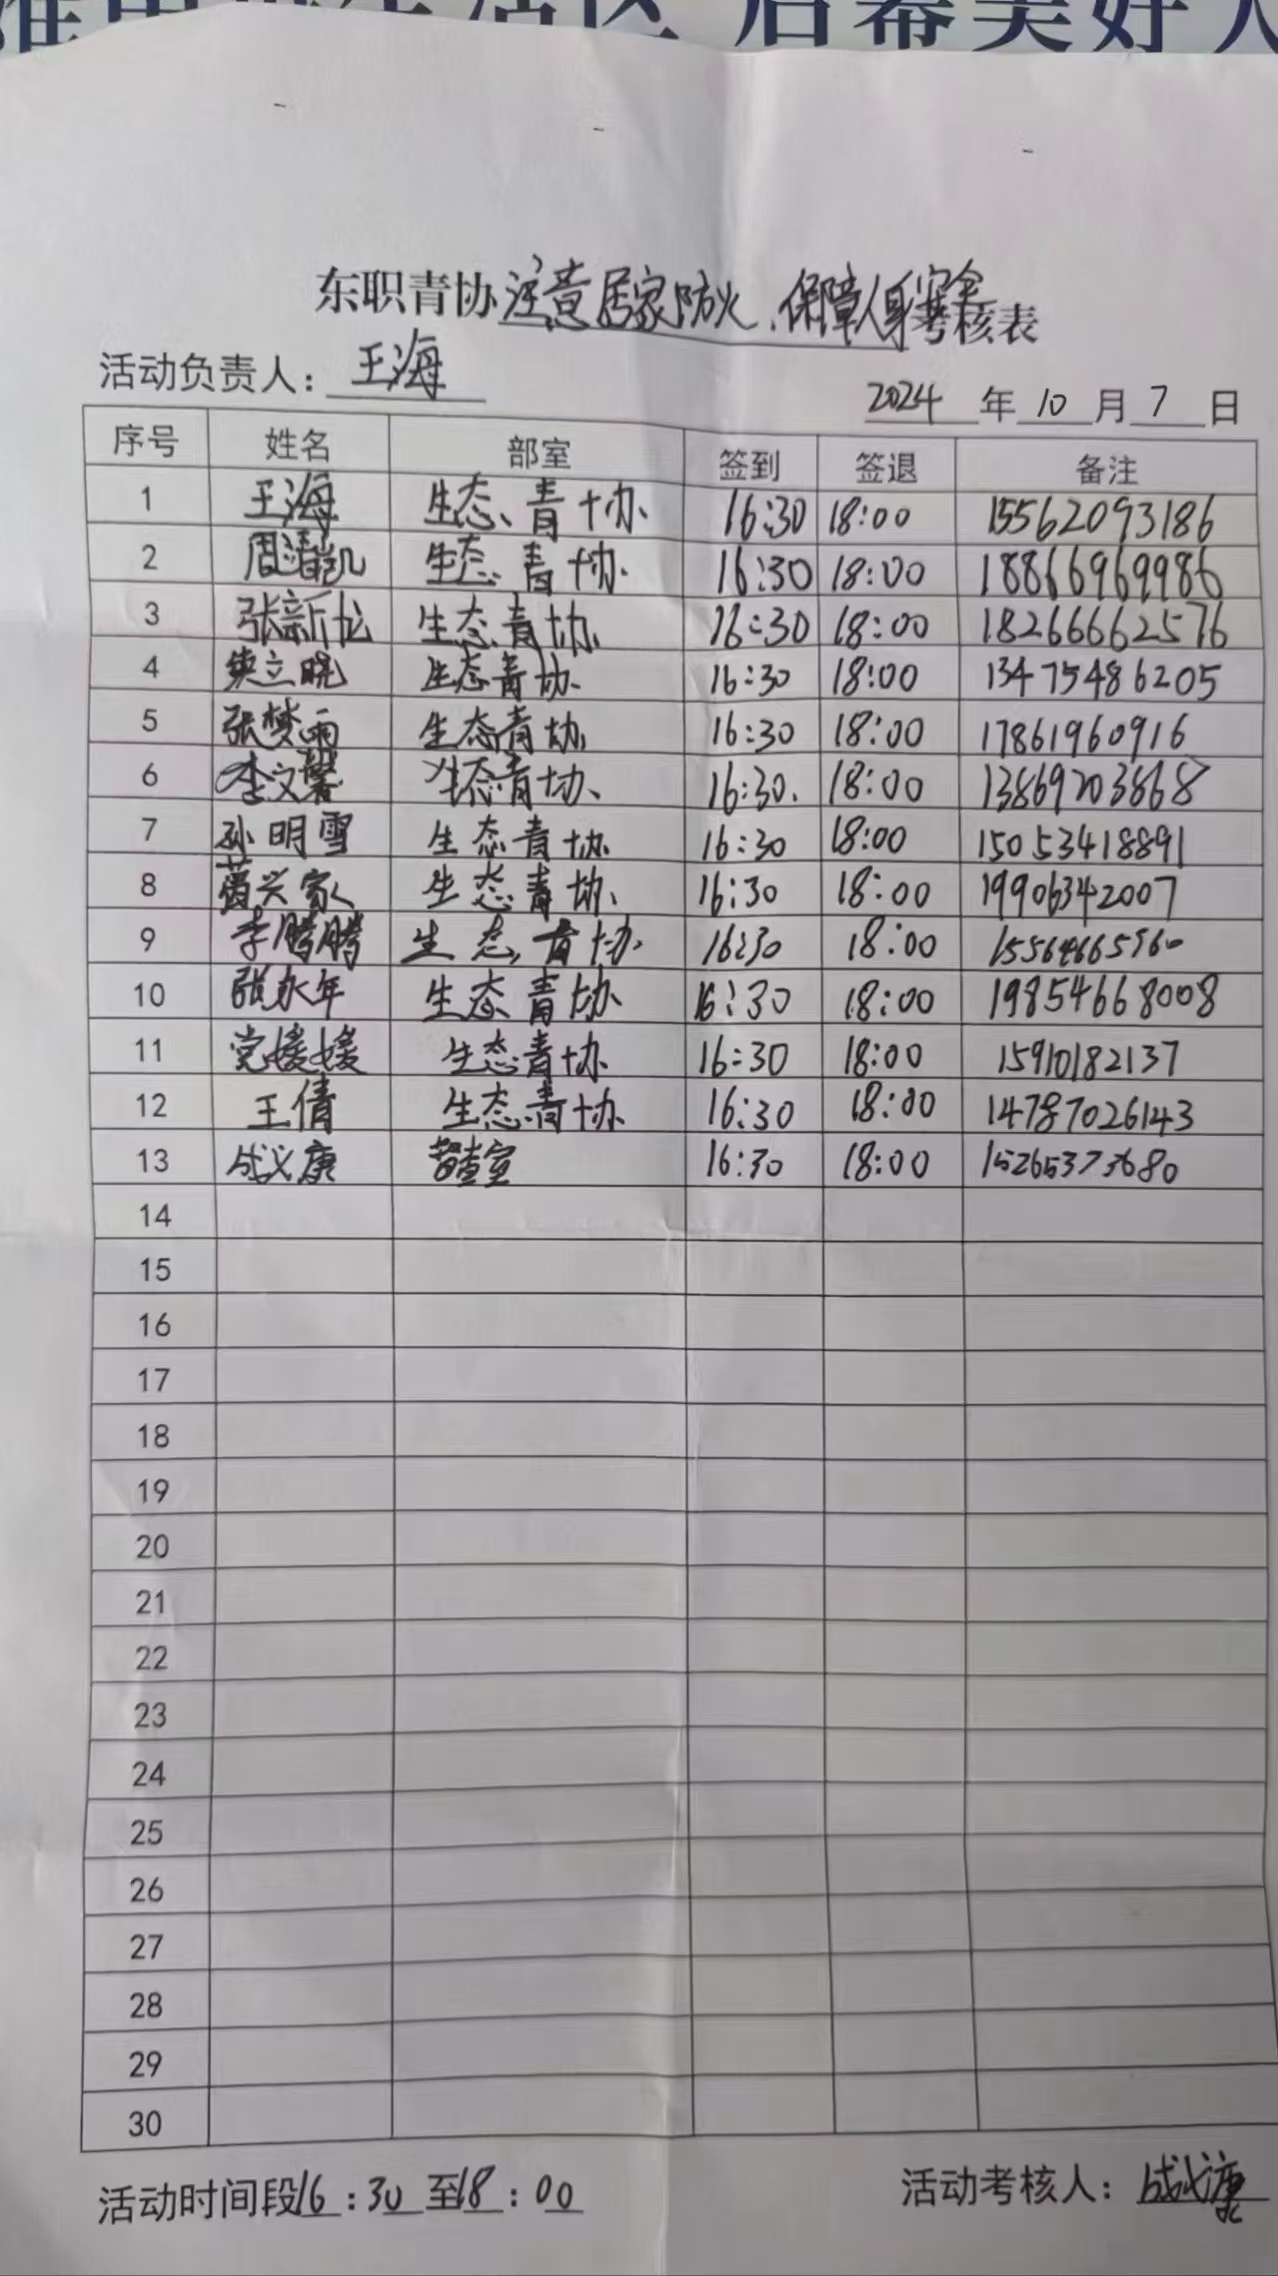 生活区 启幕美好人
东职青协注意居家防火、保障人身安全考核表
活动负责人：王海
2024年10月7日
序号 姓名 部室 签到 签退 备注
1 王海 生态青协 16:30 18:00 15562093186
2 周清凯 生态青协 16:30 18:00 18866969986
3 张新龙 生态青协 16:30 18:00 18266662576
4 立晓 生态青协 16:30 18:00 13475486205
5 张梦雨 生态青协 16:30 18:00 17861960916
6 李文馨 生态青协 16:30 18:00 13869203868
7 孙明雪 生态青协 16:30 18:00 15053418891
8 兴家 生态青协 16:30 18:00 19906342007
9 李腾腾 生态青协 16:30 18:00
10 张永年 生态青协 16:30 18:00 19854668008
11 党媛媛 生态青协 16:30 18:00 15910182137
12 王倩 生态青协 16:30 18:00 14787026143
13 成义康 督查室 16:30 18:00 15265373680
14
15
16
17
18
19
20
21
22
23
24
25
26
27
28
29
30
活动时间段16:30至18:00 活动考核人：成义康